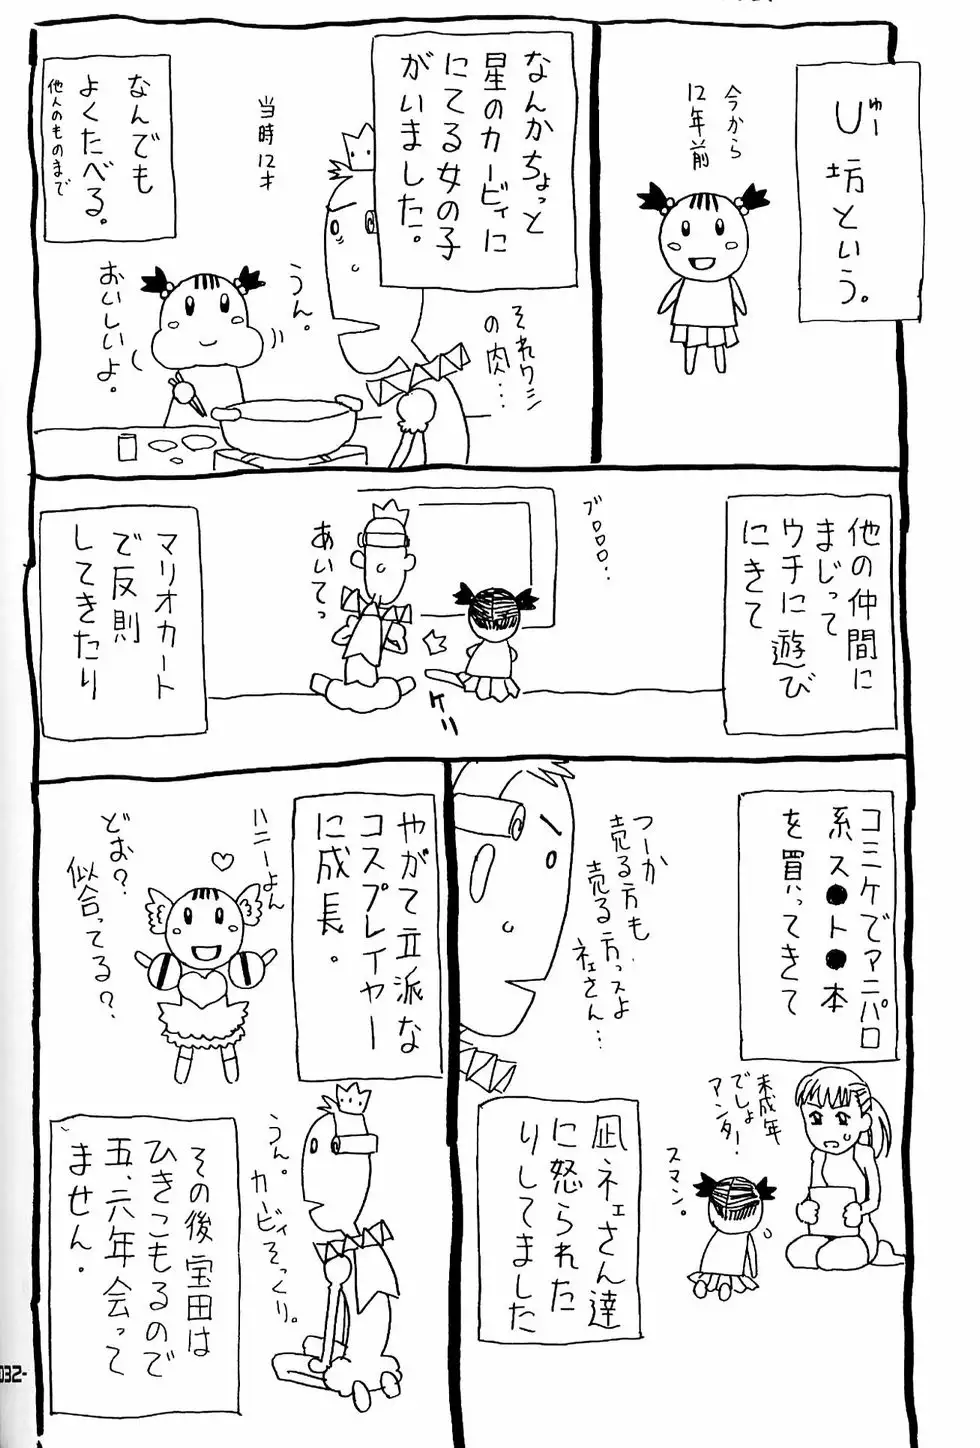 今から
12年前
びゅー
U坊という。
なんかちょっと
星のカービィに
にてる女の子
がいました。
それワシ
の肉…
うん。
おいしいよ。
当時12才
なんでも
よくたべる。
他人のものまで
他の仲間に
まじって
ウチに遊び
にきて
ブロロロ…
あいてっ
ゲリ
マリオカート
で反則
してきたり
コミケでアニパロ
系ス●ト●本
を買ってきて
つーか
売る方も
売る方っスよ
ネェさん…
未成年
でしょ
アンタ!
スマン。
凪ネェさん達
に怒られた
りしてました
やがて立派な
コスプレイヤー
に成長。
ハニーよん
どお?
似合ってる?
うん。
カービィそっくり。
その後宝田は
ひきこもるので
五、六年会って
ません。
032-